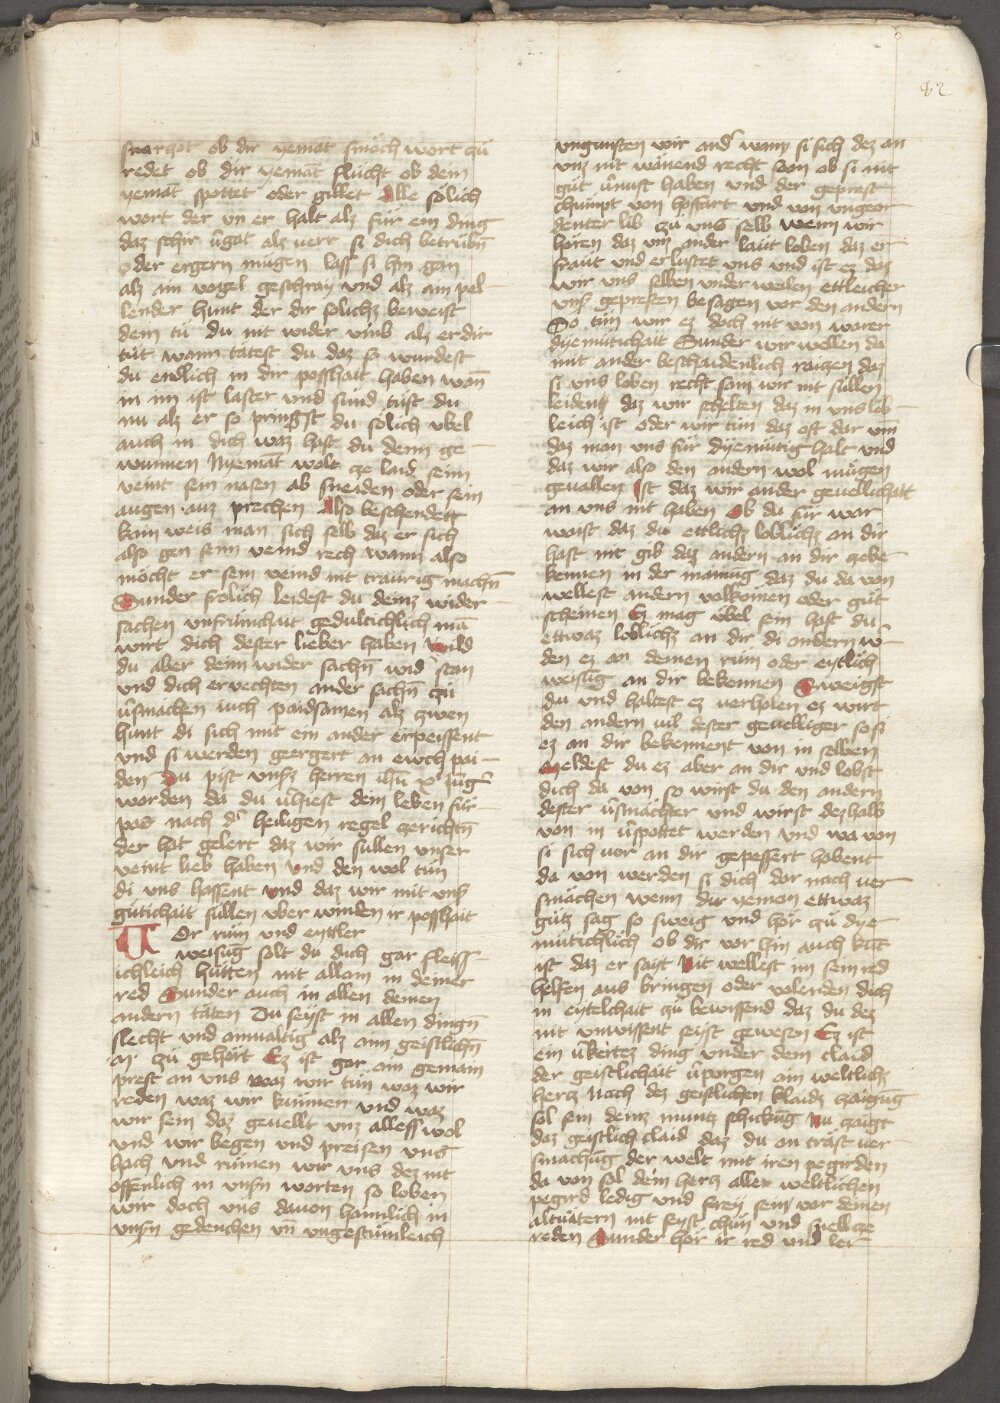 82
snarzat ob dir yemāt smäch wort zů
redet ob dir yemāt flücht ob dein
yemāt spottet oder gillet Alle sölich
wort der vn er halt alz für ein ding
daz schir v̄gat alz verr si dich betrübn̄
oder ergern mügen lass si hin gen
alz ain vogel geschray vnd alz ain pel
lender hunt der dir solichz beweist
dem tů du nit wider vmb alz er dir
tůt wann tätest du daz so wurdest
du endlich in dir posshait haben wan̄
in im ist laster vnd sünd tůst du
nu alz er so pringst du solich vbel
auch in dich waz hast du denn ge
wunnen Nyemāt wolt ze laid seim
veint sein nasen ab sneiden oder sein
augen auz prechen Also beschendett
kain weis man sich selb daz er sich
also gen seim veind rech wann also
möcht er sein veind nit traurig machn̄
Sunder frolich leidest du deinz wider
sachen vnfrüntchait gedultichlich mā
wirt dich dester lieber haben wild
du aber deim wider sachn̄ wid stan
vnd dich ervechten ander sachn̄ zů
v̄smachen euch paidsamen alz zwen
hunt di sich mit ein ander erpeissent
vnd si werden geergert an ewch pai
den Du pist vnsz herren ihū xp̄ jūg
worden da du v̄hiest dein leben für
paz nach d' heiligen regel zerichtn̄
der hat gelert daz wir süllen vnser
veint lieb haben vnd den wol tůn
di vns hassent vnd daz wir mit vns'
gütichait süllen vber winden ir posshait
Vor rům vnd eyttler
weisūg solt du dich gar fleiss
ichleich hütten nit allain in deiner
red Sunder auch in allen deinen
andern täten Du seyst in allen dingn̄
slecht vnd ainualtig alz aim geistlichn̄
zů gehört Ez ist gar ain gemain
prest an vns waz wir tůn waz wir
reden waz wir künnen vnd waz
wir sein daz geuellt vnz alless wol
vnd wir begen vnd preisen vns
hoch vnd růmen wir vns dez nit
offenlich in vnsn̄ worten so loben
wir doch vns dauon haimlich in
vnsn̄ gedencken vn̄ vngestümleich
vngunsten wir and' wann si sich dez an
vnz nit wänend recht sam ob si nit
gůt v̄nust haben vnd der geprest
chumpt von hoffart vnd von vngeor
denter lib zů vns selb wenn wir
hören daz vns ander läut loben daz er
fräut vnd erlustet vns vnd ist ez daz
wir vns selben vnderweilen ettleicher
vns' gepresten besagen vor den andern
So tůn wir ez doch nit von warer
dyemütichait Sunder wir wellen da
mit ander beschaidenlich raizen daz
si vns loben recht sam wir nit süllen
leiden daz wir schelten daz in vns lob
leich ist oder wir tůn daz oft dar vm̄
daz man vns für dyemütig halt vnd
daz wir also den andern wol mügen
geuallen Ist daz wir ander geuellichait
an vns nit haben Ob du für war
waist daz du ettlichz loblichz an dir
hast nit gib daz andern an dir zebe
kennen in der mainūg daz du da von
wellest andern volkōmen oder gůt
scheinen Ez mag vbel sein hast du
ettwaz loblichz an dir di andern w'
den ez an deinen rům oder eytlich
weisūg an dir bekennen Sweigst
du vnd haltest ez verholen ez wirt
den andern vil dester geuelliger so si
ez an dir bekennent von in selben
Meldest du ez aber an dir vnd lobst
dich da von so wirst du den andern
dester v̄smächter vnd wirst deshalb
von in v̄spottet werden vnd wa von
si sich vor an dir gepessert habent
da von werden si dich dar nach ver
smächen wenn dir yeman ettwaz
gůtz sag so sweig vnd hör zů dye
mütichlich ob dir vor hin auch kūt
ist daz er sait Nit wellest im sein red
helfen aus bringen oder volenden dich
in eytelchait zů bewissend daz du dez
nit vnwissent seyst gewesen Ez ist
ein v̄kertez ding vnder dem claid
der geistlichait v̄porgen ain weltlichz
hercz Nach dez geistlichen klaidz zaigūg
sol sein deinz muntz schickūg Nu zaigt
daz geistlich claid daz du an träst ver
smachūg der welt mit iren pegirden
da von sol dein hercz aller weltlichen
pegird ledig vnd frey sein vor deinen
altuätern nit seyst chün vnd snell ze
reden Sunder hör ir red vnd ler